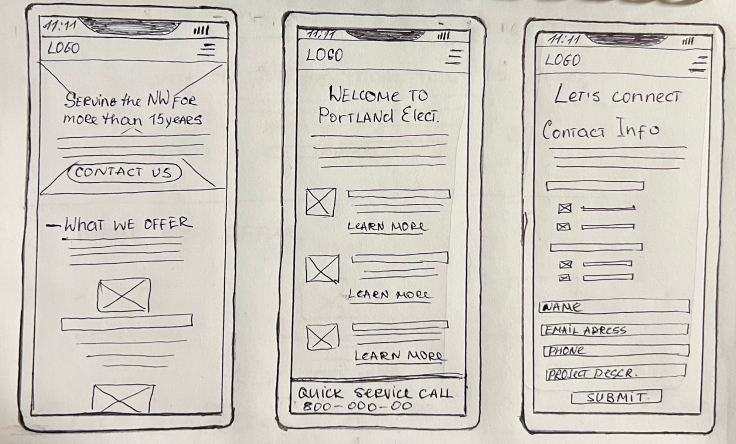 11:11
LOGO
Serving the NW for
more than 15 years
CONTACT US
What we offer
11:11
LOGO
Welcome to
Portland Elect.
Learn more
Learn more
Learn more
Quick service call
800-000-00
11:11
LOGO
Let's connect
Contact Info
Name
Email adress
Phone
Project descr.
Submit